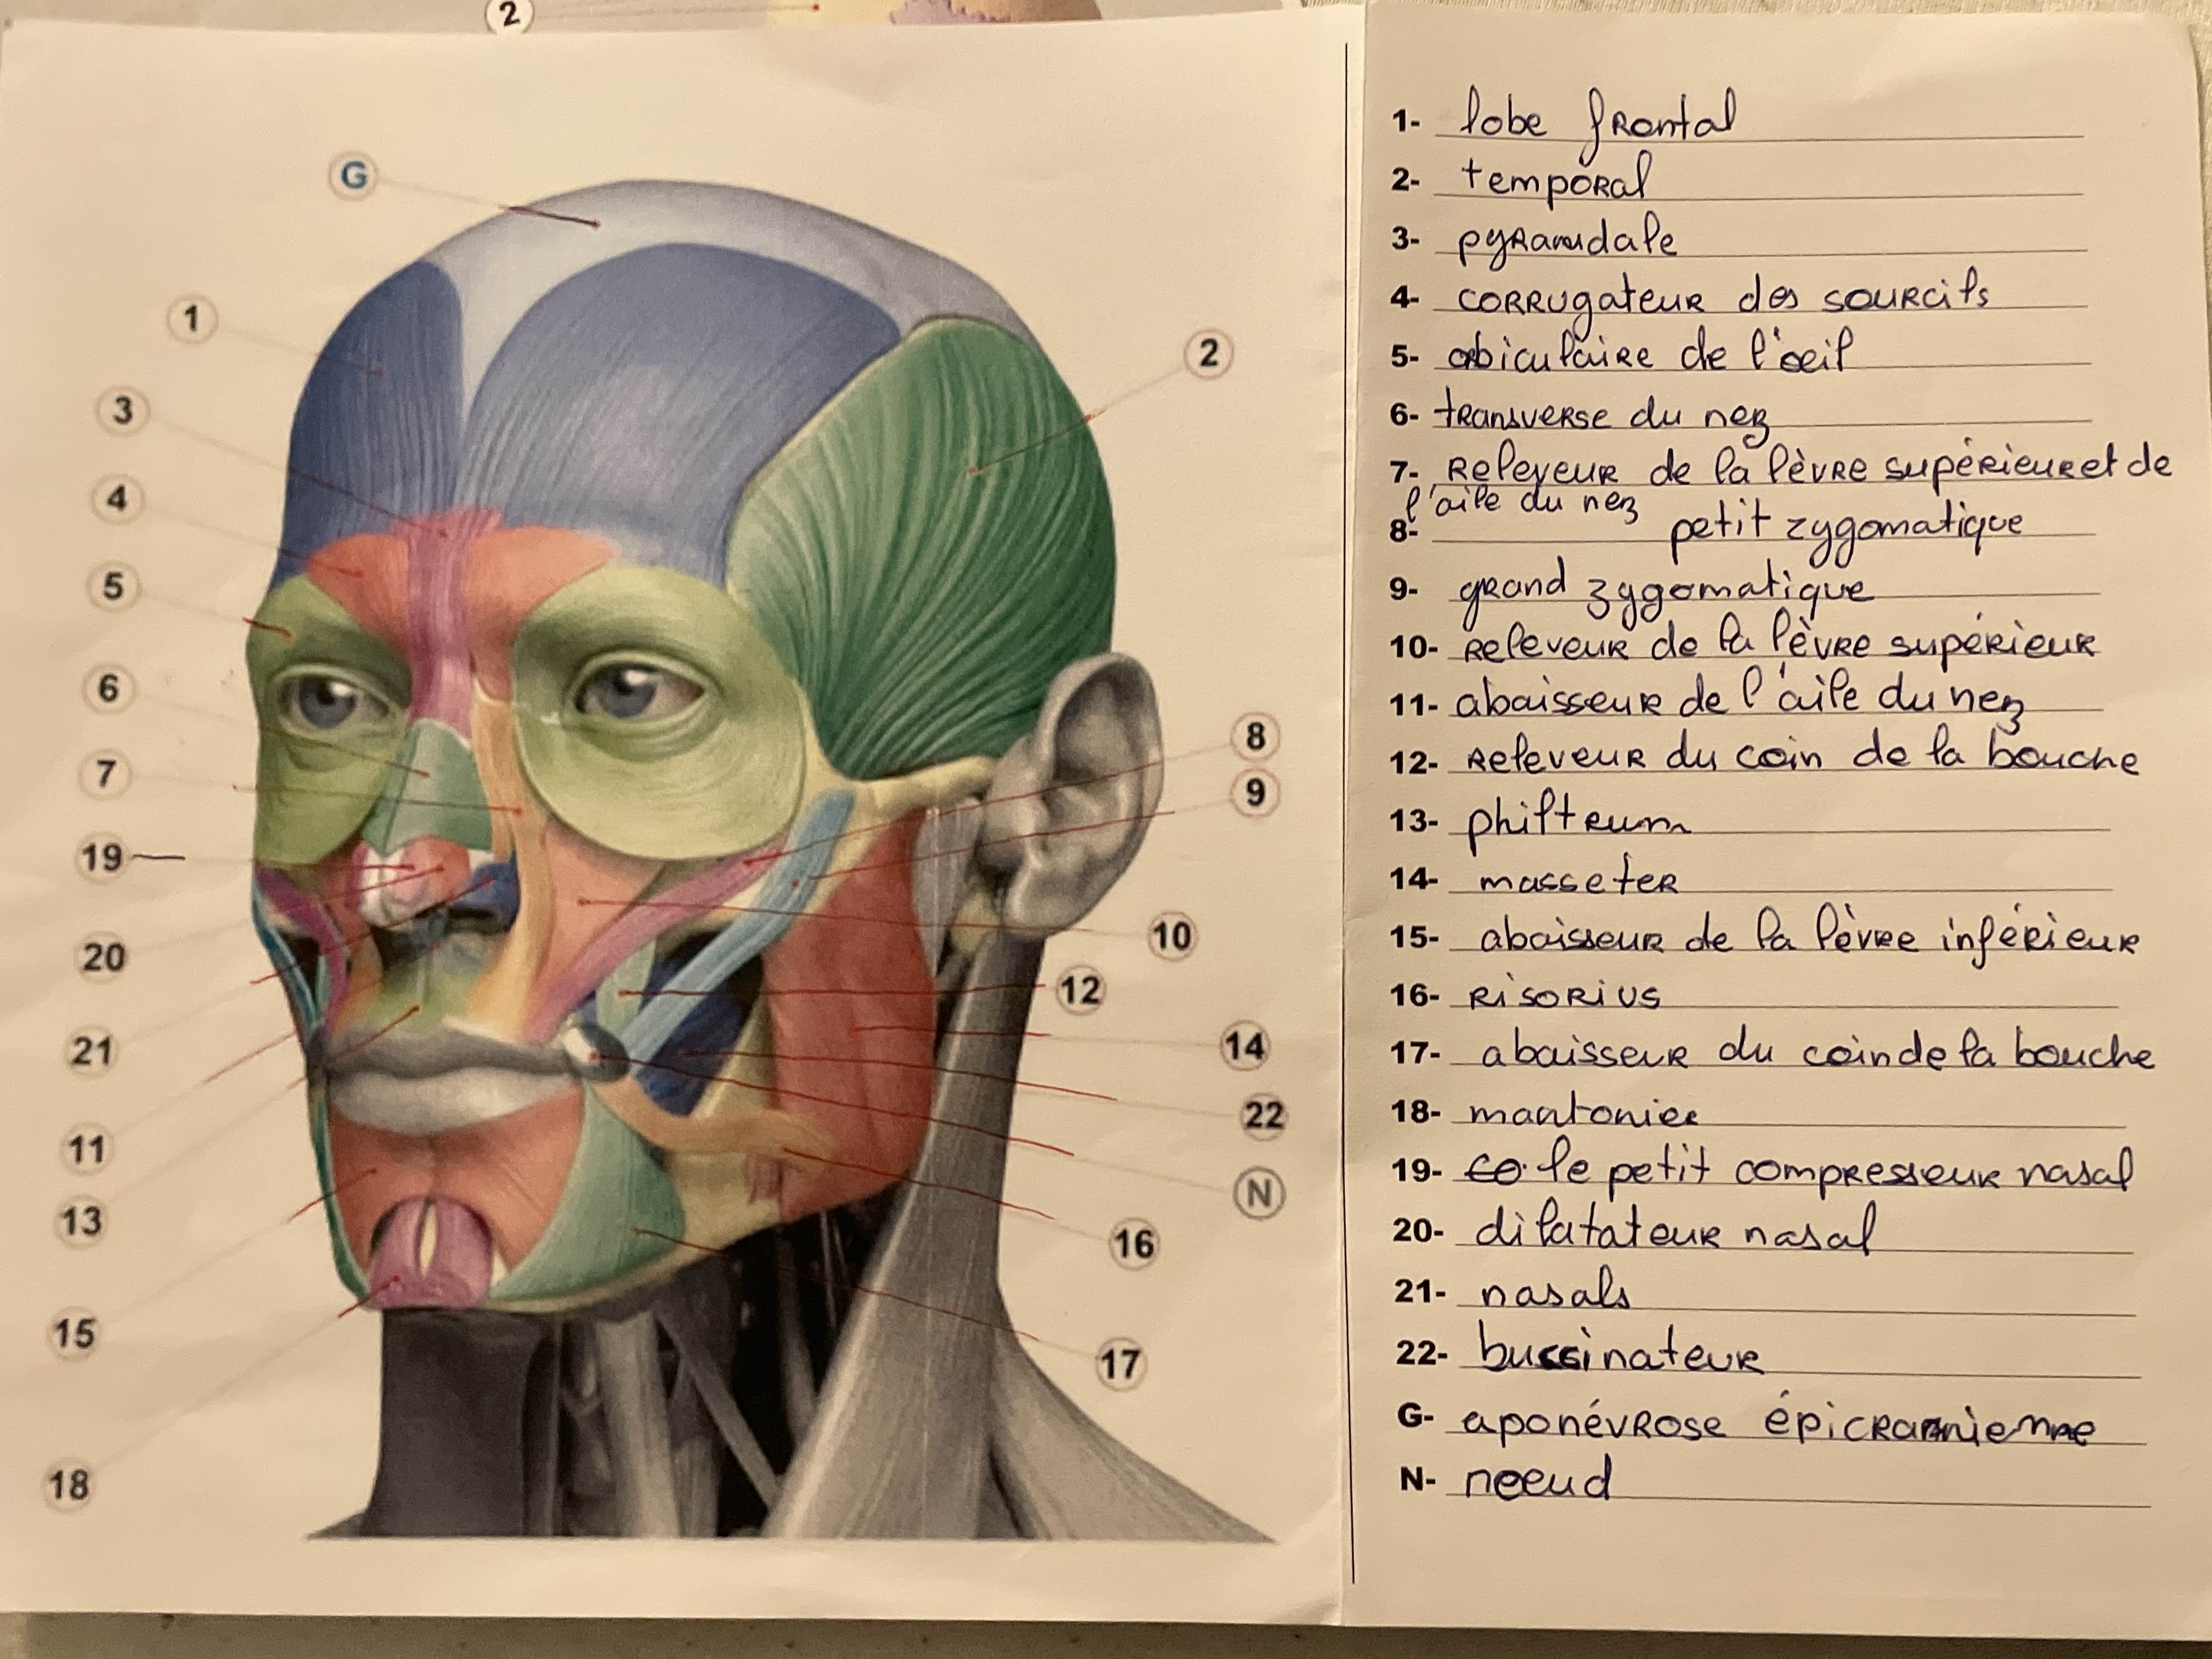 2
G
1
2
3
4
5
6
7
8
9
19
10
20
12
21
14
22
11
N
13
16
15
17
18
1- lobe frontal
2- temporal
3- pyramidale
4- corrugateur des sourcils
5- obiculaire de l'œil
6- transverse du nez
7- Releveur de la lèvre supérieur et de
l'aile du nez
8- petit zygomatique
9- grand zygomatique
10- Releveur de la lèvre supérieur
11- abaisseur de l'aile du nez
12- Releveur du coin de la bouche
13- philtrum
14- masseter
15- abaisseur de la lèvre inférieur
16- Risorius
17- abaisseur du coin de la bouche
18- mantonier
19- le petit compresseur nasal
20- dilatateur nasal
21- nasals
22- buccinateur
G- aponévrose épicranienne
N- noeud